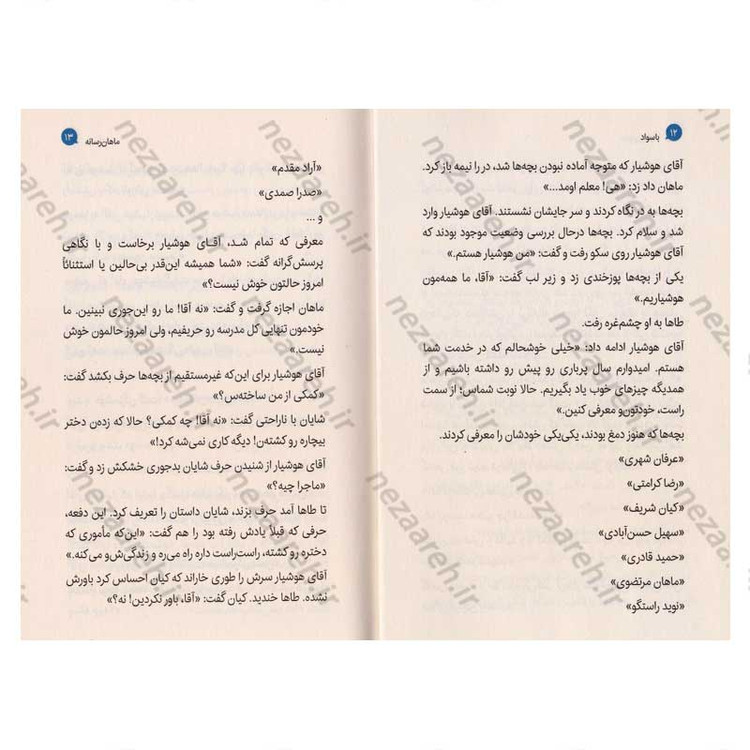 ۱۲ باسواد
آقای هوشیار که متوجه آماده نبودن بچه‌ها شد، در را نیمه باز کرد.
ماهان داد زد: «هی! معلم اومد...»
بچه‌ها به در نگاه کردند و سر جایشان نشستند. آقای هوشیار وارد
شد و سلام کرد. بچه‌ها درحال بررسی وضعیت موجود بودند که
آقای هوشیار روی سکو رفت و گفت: «من هوشیار هستم.»
یکی از بچه‌ها پوزخندی زد و زیر لب گفت: «آقا، ما همه‌مون
هوشیاریم.»
طاها به او چشم‌غره رفت.
آقای هوشیار ادامه داد: «خیلی خوشحالم که در خدمت شما
هستم. امیدوارم سال پرباری رو پیش رو داشته باشیم و از
همدیگه چیزهای خوب یاد بگیریم. حالا نوبت شماس؛ از سمت
راست، خودتون‌و معرفی کنین.»
بچه‌ها که هنوز دمغ بودند، یکی‌یکی خودشان را معرفی کردند.
«عرفان شهری»
«رضا کرامتی»
«کیان شریف»
«سهیل حسن‌آبادی»
«حمید قادری»
«ماهان مرتضوی»
«نوید راستگو»
ماهان‌رسانه ۱۳
«آراد مقدم»
«صدرا صمدی»
و ...
معرفی که تمام شد، آقای هوشیار برخاست و با نگاهی
پرسش‌گرانه گفت: «شما همیشه این‌قدر بی‌حالین یا استثنائاً
امروز حالتون خوش نیست؟»
ماهان اجازه گرفت و گفت: «نه آقا! ما رو این‌جوری نبینین. ما
خودمون تنهایی کل مدرسه رو حریفیم، ولی امروز حالمون خوش
نیست.»
آقای هوشیار برای این‌که غیرمستقیم از بچه‌ها حرف بکشد گفت:
«کمکی از من ساخته‌س؟»
شایان با ناراحتی گفت: «نه آقا! چه کمکی؟ حالا که زده‌ن دختر
بیچاره رو کشته‌ن! دیگه کاری نمی‌شه کرد!»
آقای هوشیار از شنیدن حرف شایان بدجوری خشکش زد و گفت:
«ماجرا چیه؟»
تا طاها آمد حرف بزند، شایان داستان را تعریف کرد. این دفعه،
حرفی که قبلاً یادش رفته بود را هم گفت: «این‌که مأموری که
دختره رو کشته، راست‌راست داره راه می‌ره و زندگی‌ش‌و می‌کنه.»
آقای هوشیار سرش را طوری خاراند که کیان احساس کرد باورش
نشده. طاها خندید. کیان گفت: «آقا، باور نکردین! نه؟»
nezaareh.ir